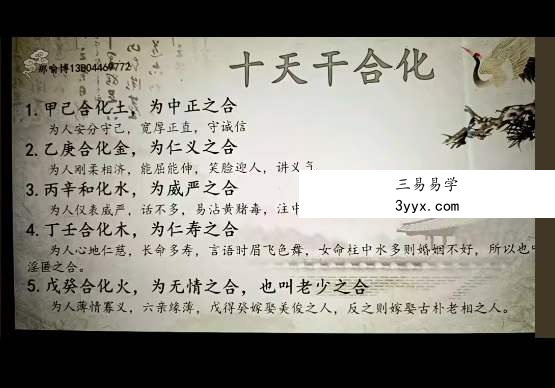 十天干合化
1.甲己合化土，为中正之合
为人安分守己，宽厚正直，守诚信
2.乙庚合化金，为仁义之合
为人刚柔相济，能屈能伸，笑脸迎人，讲义气
3.丙辛和化水，为威严之合
三易易学
3yyx.com
为人仪表威严，话不多，易沾黄赌毒，注
4.丁壬合化木，为仁寿之合
为人心地仁慈，长命多寿，言语时眉飞色舞，女命柱中水多则婚姻不好，所以也
淫匿之合。
5.戊癸合化火，为无情之合，也叫老少之合
为人薄情寡义，六亲缘薄，戊得癸嫁娶美俊之人，反之则嫁娶古朴老相之人。